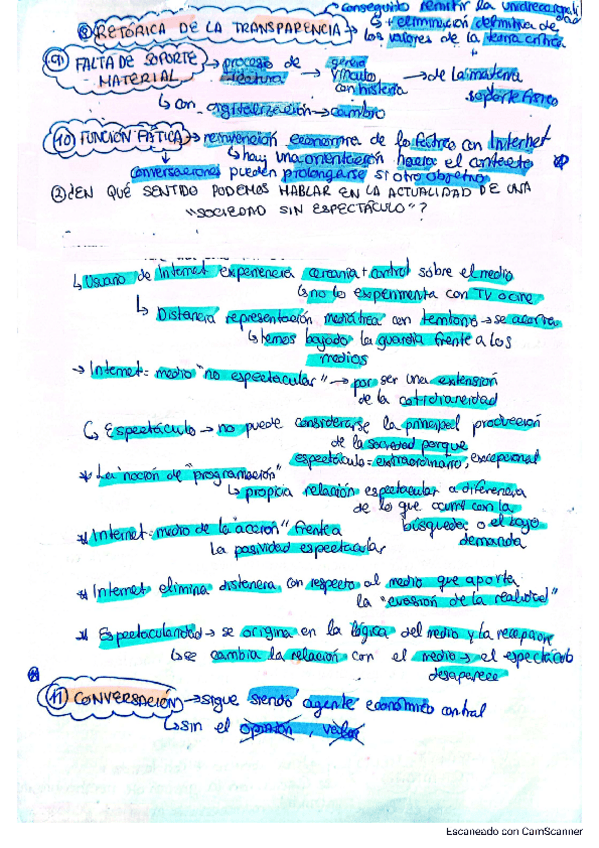 conseguido remitir la unidireccionalidad
⑧ RETÓRICA DE LA TRANSPARENCIA → + eliminación definitiva de
los valores de la teoría crítica
⑨ FALTA DE SOPORTE MATERIAL → proceso de lectura → genera vínculo con historia → de la materia soporte físico
↳ con digitalización → cambio
⑩ FUNCIÓN FÁTICA → reinvención económica de lo fáctico con Internet
↳ hay una orientación hacia el contacto
conversaciones pueden prolongarse si otro objetivo
② ¿EN QUÉ SENTIDO PODEMOS HABLAR EN LA ACTUALIDAD DE UNA
"SOCIEDAD SIN ESPECTÁCULO"?
↳ Usuario de Internet experiencia cercanía + control sobre el medio
↳ no lo experimenta con TV o cine
↳ Distancia representación mediática con territorio → se acorta
↳ hemos bajado la guardia frente a los
medios
→ Internet = medio "no espectacular" → por ser una extensión
de la cotidianeidad
↳ Espectáculo → no puede considerarse la principal producción
de la sociedad porque
espectáculo = extraordinario, excepcional
* La noción de "programación"
↳ propicia relación espectacular a diferencia
de lo que ocurre con la
búsqueda o el bajo
demanda
* Internet = medio de la "acción" frente a
la pasividad espectacular
* Internet elimina distancia con respecto al medio que aporta
la "evasión de la realidad"
* Espectacularidad → se origina en la lógica del medio y la recepción
↳ se cambia la relación con el medio → el espectáculo
desaparece
⑪ CONVERSACIÓN → sigue siendo agente económico central
↳ sin el opinión, valor
Escaneado con CamScanner